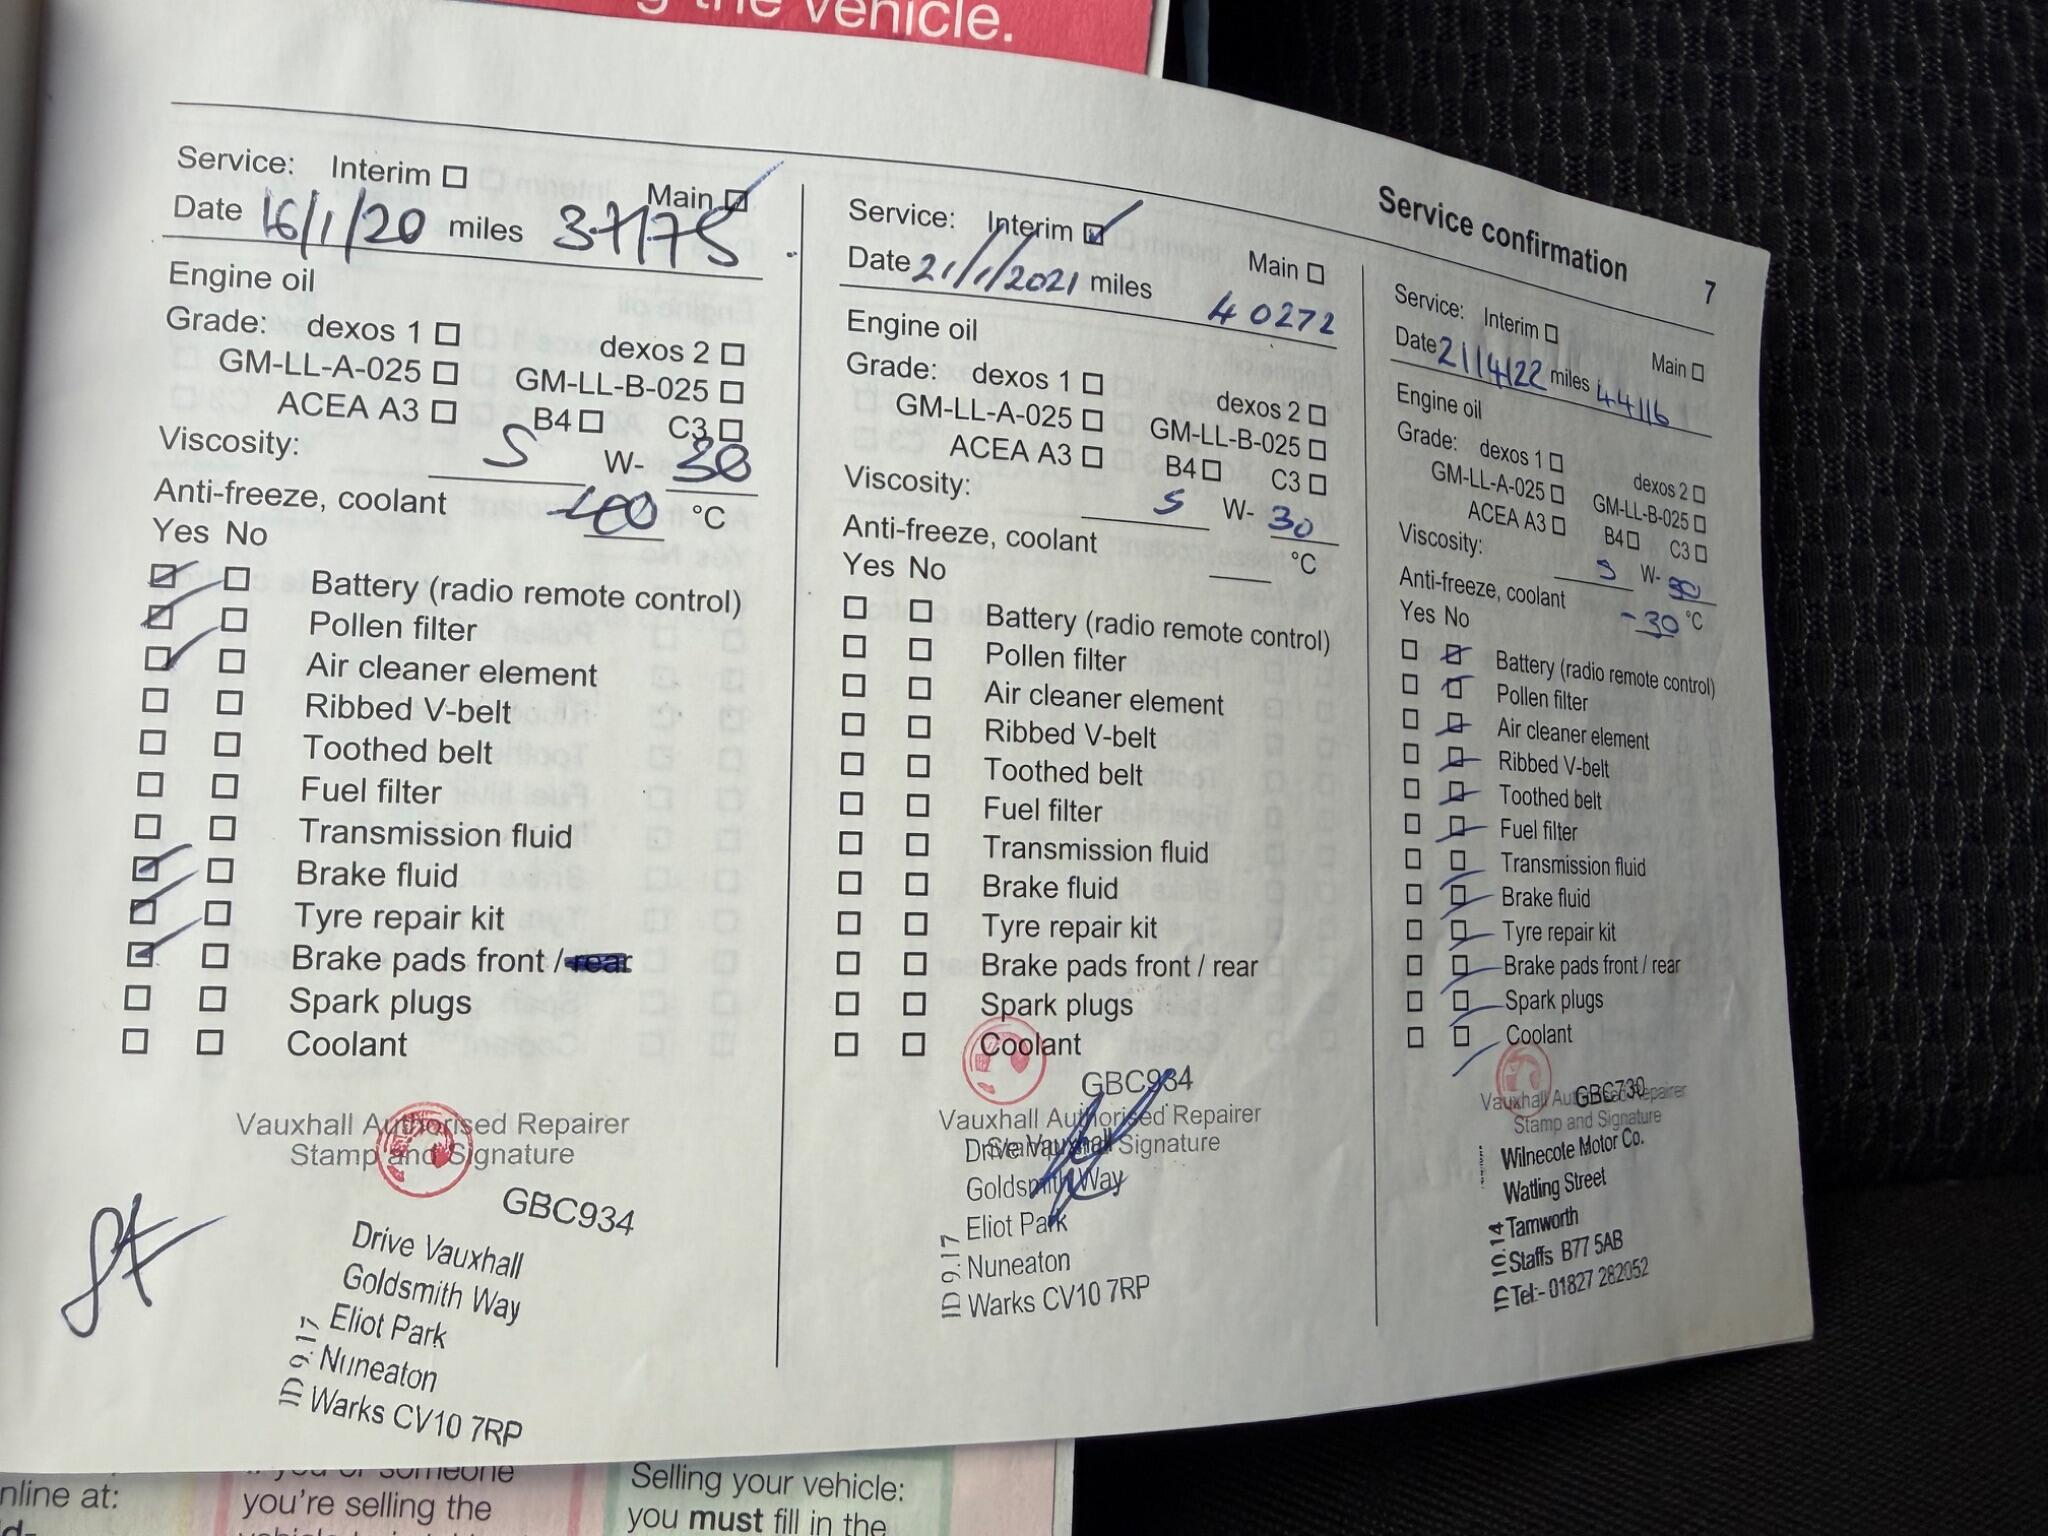 g the vehicle.
Service confirmation 7
Service: Interim ☐
Main ☑
Date 16/1/20 miles 37175
Engine oil
Grade: dexos 1 ☐ dexos 2 ☐
GM-LL-A-025 ☐ GM-LL-B-025 ☐
ACEA A3 ☐ B4 ☐ C3 ☐
Viscosity: 5 W- 30
Anti-freeze, coolant °C
Yes No
☑ ☐ Battery (radio remote control)
☑ ☐ Pollen filter
☑ ☐ Air cleaner element
☐ ☐ Ribbed V-belt
☐ ☐ Toothed belt
☐ ☐ Fuel filter
☐ ☐ Transmission fluid
☑ ☐ Brake fluid
☑ ☐ Tyre repair kit
☑ ☐ Brake pads front / rear
☐ ☐ Spark plugs
☐ ☐ Coolant
Vauxhall Authorised Repairer
Stamp and Signature
GBC934
Drive Vauxhall
Goldsmith Way
Eliot Park
Nuneaton
Warks CV10 7RP
ID 9.17
Service: Interim ☑
Main ☐
Date 21/1/2021 miles 40272
Engine oil
Grade: dexos 1 ☐ dexos 2 ☐
GM-LL-A-025 ☐ GM-LL-B-025 ☐
ACEA A3 ☐ B4 ☐ C3 ☐
Viscosity: 5 W- 30
Anti-freeze, coolant °C
Yes No
☐ ☐ Battery (radio remote control)
☐ ☐ Pollen filter
☐ ☐ Air cleaner element
☐ ☐ Ribbed V-belt
☐ ☐ Toothed belt
☐ ☐ Fuel filter
☐ ☐ Transmission fluid
☐ ☐ Brake fluid
☐ ☐ Tyre repair kit
☐ ☐ Brake pads front / rear
☐ ☐ Spark plugs
☐ ☐ Coolant
GBC934
Vauxhall Authorised Repairer
Stamp and Signature
Drive Vauxhall
Goldsmith Way
Eliot Park
Nuneaton
Warks CV10 7RP
ID 9.17
Service: Interim ☐
Main ☐
Date 21/4/22 miles 44116
Engine oil
Grade: dexos 1 ☐ dexos 2 ☐
GM-LL-A-025 ☐ GM-LL-B-025 ☐
ACEA A3 ☐ B4 ☐ C3 ☐
Viscosity: 5 W- 30
Anti-freeze, coolant -30 °C
Yes No
☐ ☑ Battery (radio remote control)
☐ ☑ Pollen filter
☐ ☑ Air cleaner element
☐ ☑ Ribbed V-belt
☐ ☑ Toothed belt
☐ ☑ Fuel filter
☐ ☑ Transmission fluid
☐ ☑ Brake fluid
☐ ☑ Tyre repair kit
☐ ☑ Brake pads front / rear
☐ ☑ Spark plugs
☐ ☑ Coolant
GBC730
Vauxhall Authorised Repairer
Stamp and Signature
Wilnecote Motor Co.
Watling Street
Tamworth
Staffs B77 5AB
Tel:- 01827 282052
ID 10.14
nline at:
if you or someone
you're selling the
Selling your vehicle:
you must fill in the